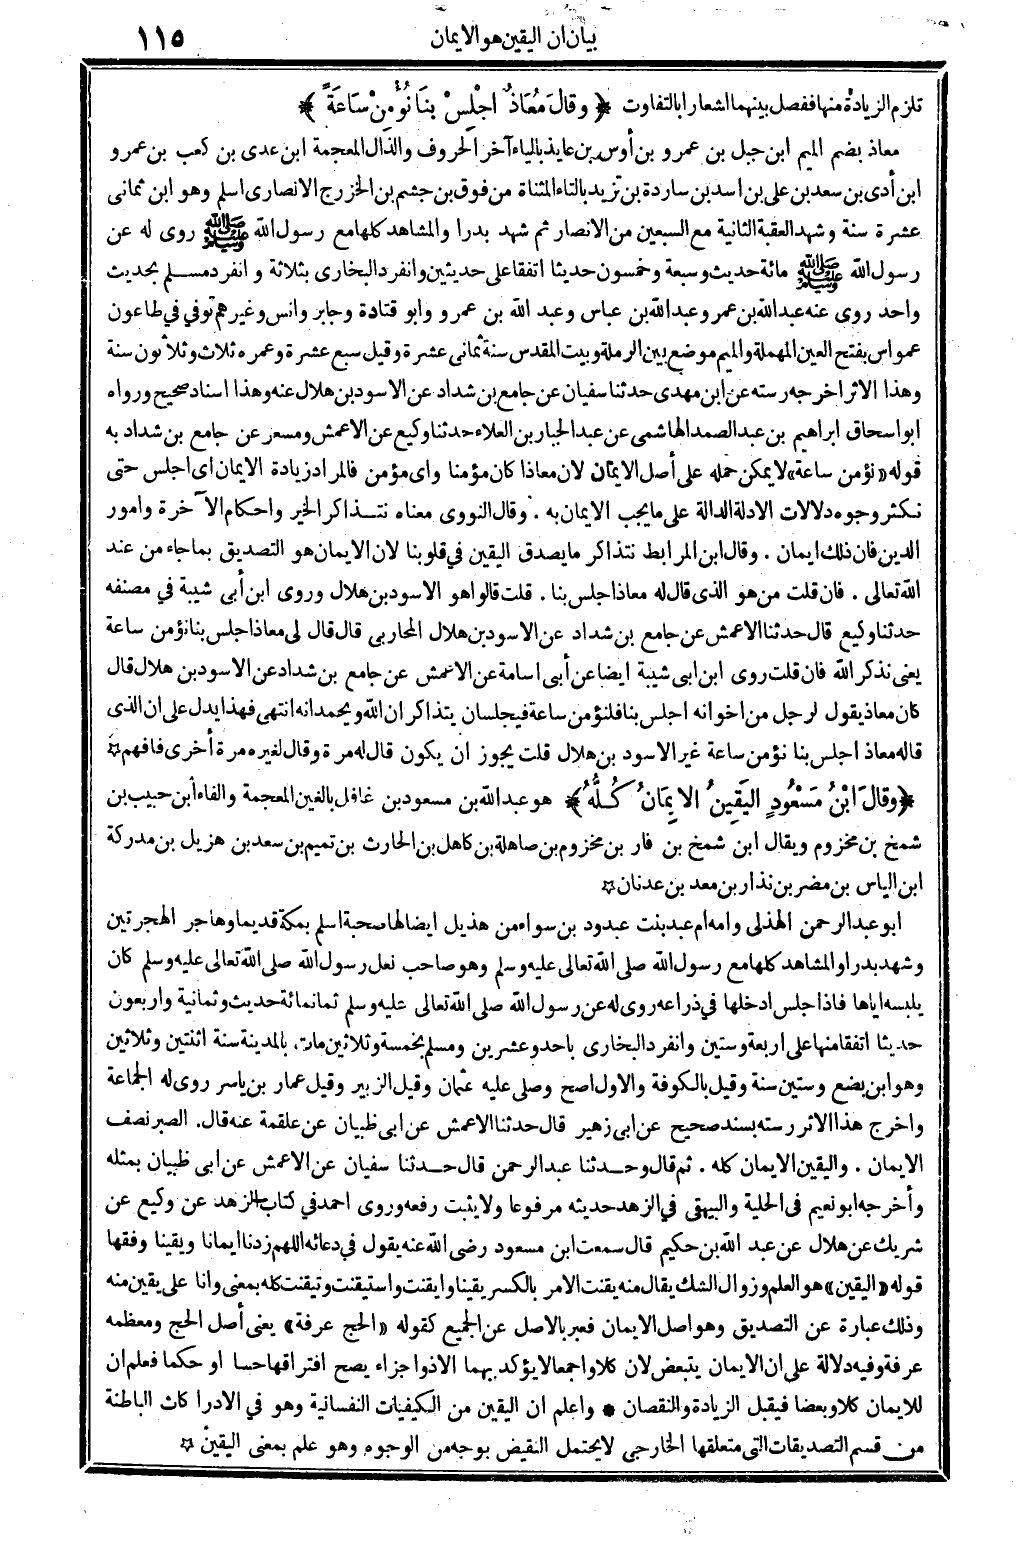 بيان ان اليقين هو الايمان ١١٥
تلزم الزيادة منها ففصل بينهما اشعارا بالتفاوت ﴿ وقالَ مُعَاذٌ اجْلِسْ بِنَا نُؤْمِنْ سَاعَةً ﴾
معاذ بضم الميم ابن جبل بن عمرو بن أوس بن عايذ بالياء آخر الحروف والذال المعجمة ابن عدى بن كعب بن عمرو
ابن أدى بن سعد بن على بن اسد بن ساردة بن تزيد بالتاء المثناة من فوق بن جشم بن الخزرج الانصارى اسلم وهو ابن ثمانى
عشرة سنة وشهد العقبة الثانية مع السبعين من الانصار ثم شهد بدرا والمشاهد كلها مع رسول الله ﷺ روى له عن
رسول الله ﷺ مائة حديث وسبعة وخمسون حديثا اتفقا على حديثين وانفرد البخارى بثلاثة وانفرد مسلم بحديث
واحد روى عنه عبد الله بن عمر وعبد الله بن عباس وعبد الله بن عمرو وابو قتادة وجابر وانس وغيرهم توفي في طاعون
عمواس بفتح العين المهملة والميم موضع بين الرملة وبيت المقدس سنة ثمانى عشرة وقيل سبع عشرة وعمره ثلاث وثلاثون سنة
وهذا الاثر اخرجه رسته عن ابن مهدى حدثنا سفيان عن جامع بن شداد عن الاسود بن هلال عنه وهذا اسناد صحيح ورواه
ابو اسحاق ابراهيم بن عبد الصمد الهاشمى عن عبد الجبار بن العلاء حدثنا وكيع عن الاعمش ومسعر عن جامع بن شداد به
قوله «نؤمن ساعة» لا يمكن حمله على أصل الايمان لان معاذا كان مؤمنا واى مؤمن فالمراد زيادة الايمان اى اجلس حتى
نكثر وجوه دلالات الادلة الدالة على ما يجب الايمان به . وقال النووى معناه نتذاكر الخير واحكام الآخرة وامور
الدين فان ذلك ايمان . وقال ابن المرابط نتذاكر ما يصدق اليقين في قلوبنا لان الايمان هو التصديق بما جاء من عند
الله تعالى . فان قلت من هو الذى قال له معاذ اجلس بنا . قلت قالوا هو الاسود بن هلال وروى ابن أبى شيبة في مصنفه
حدثنا وكيع قال حدثنا الاعمش عن جامع بن شداد عن الاسود بن هلال المحاربى قال قال لى معاذ اجلس بنا نؤمن ساعة
يعنى نذكر الله فان قلت روى ابن ابى شيبة ايضا عن أبى اسامة عن الاعمش عن جامع بن شداد عن الاسود بن هلال قال
كان معاذ يقول لرجل من اخوانه اجلس بنا فلنؤمن ساعة فيجلسان يتذاكران الله ويحمدانه انتهى فهذا يدل على ان الذى
قاله معاذ اجلس بنا نؤمن ساعة غير الاسود بن هلال قلت يجوز ان يكون قال له مرة وقال لغيره مرة أخرى فافهم ☆
﴿ وقالَ ابْنُ مَسْعُودٍ اليَقِينُ الايمَانُ كُلُّهُ ﴾ هو عبد الله بن مسعود بن غافل بالغين المعجمة والفاء أبن حبيب بن
شمخ بن مخزوم ويقال ابن شمخ بن فار بن مخزوم بن صاهلة بن كاهل بن الحارث بن تميم بن سعد بن هزيل بن مدركة
ابن الياس بن مضر بن نذار بن معد بن عدنان ☆
ابو عبد الرحمن الهذلى وامه ام عبد بنت عبدود بن سواء من هذيل ايضا لها صحبة اسلم بمكة قديما وهاجر الهجرتين
وشهد بدرا والمشاهد كلها مع رسول الله صلى الله تعالى عليه وسلم وهو صاحب نعل رسول الله صلى الله تعالى عليه وسلم كان
يلبسه اياها فاذا جلس ادخلها في ذراعه روى له عن رسول الله صلى الله تعالى عليه وسلم ثمانمائة حديث وثمانية واربعون
حديثا اتفقا منها على اربعة وستين وانفرد البخارى باحد وعشرين ومسلم بخمسة وثلاثين مات بالمدينة سنة اثنتين وثلاثين
وهو ابن بضع وستين سنة وقيل بالكوفة والاول اصح وصلى عليه عثمان وقيل الزبير وقيل عمار بن ياسر روى له الجماعة
واخرج هذا الاثر رسته بسند صحيح عن ابى زهير قال حدثنا الاعمش عن ابى ظبيان عن علقمة عنه قال. الصبر نصف
الايمان . واليقين الايمان كله . ثم قال وحدثنا عبد الرحمن قال حدثنا سفيان عن الاعمش عن ابى ظبيان بمثله
وأخرجه ابو نعيم فى الحلية والبيهقى في الزهد حديثه مرفوعا ولا يثبت رفعه وروى احمد في كتاب الزهد عن وكيع عن
شريك عن هلال عن عبد الله بن حكيم قال سمعت ابن مسعود رضى الله عنه يقول في دعائه اللهم زدنا ايمانا ويقينا وفقها
قوله «اليقين» هو العلم وزوال الشك يقال منه يقنت الامر بالكسر يقينا وايقنت واستيقنت وتيقنت كله بمعنى وانا على يقين منه
وذلك عبارة عن التصديق وهو اصل الايمان فعبر بالاصل عن الجميع كقوله «الحج عرفة» يعنى أصل الحج ومعظمه
عرفة وفيه دلالة على ان الايمان يتبعض لان كلا واجمعا لا يؤكد بهما الا ذو اجزاء يصح افتراقها حسا او حكما فعلم ان
للايمان كلا وبعضا فيقبل الزيادة والنقصان ● واعلم ان اليقين من الكيفيات النفسانية وهو في الادراكات الباطنة
من قسم التصديقات التى متعلقها الخارجى لا يحتمل النقيض بوجه من الوجوه وهو علم بمعنى اليقين ☆